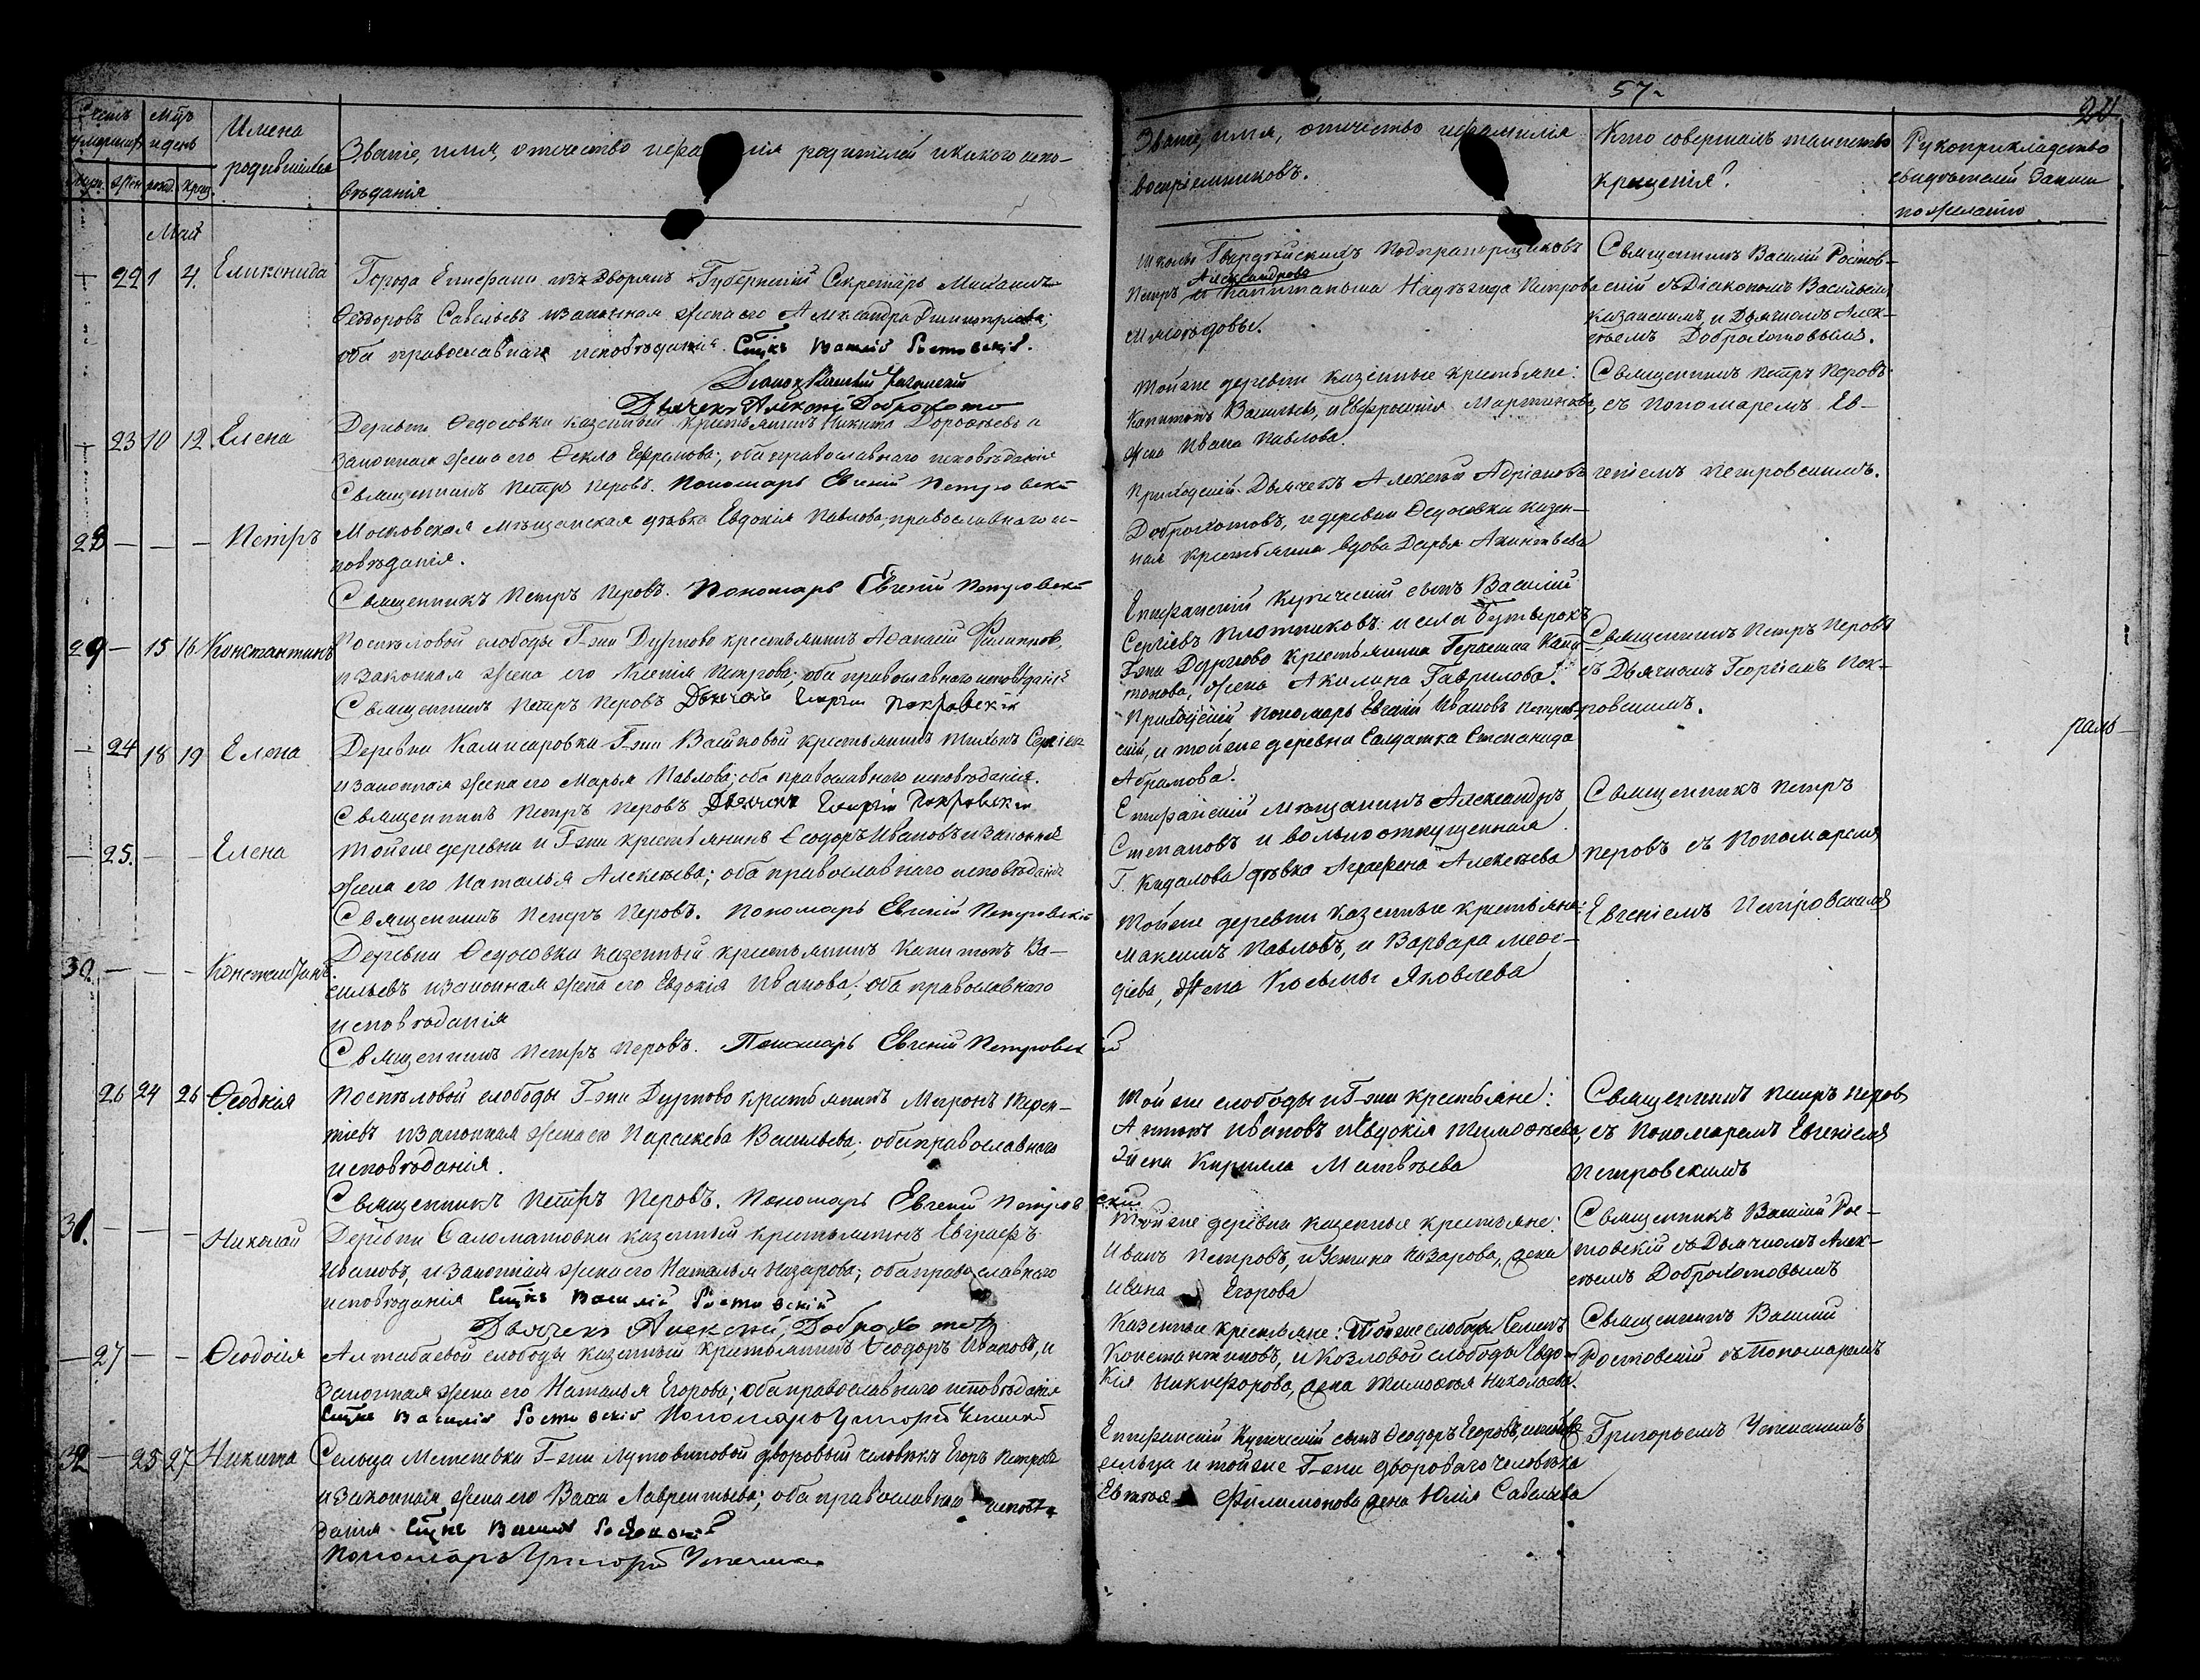 57.
20.
Счетъ родившихся
Мѣс. и день
Имена родившихся
Званіе, имя, отчество и фамилія родителей и какого испо-
вѣданія
Званіе, имя, отчество и фамилія
воспріемниковъ.
Кто совершалъ таинство
крещенія?
Рукоприкладство
свидѣтелей записи
по желанію
Муж. Жен. рожд. крещ.
Май
22 1 4. Еликонида
Города Епифани изъ Дворянъ Губернскій Секретарь Михаилъ
Ѳеодоровъ Савельевъ и законная жена его Александра Димитріева;
оба православнаго исповѣданія. Сщ҃нкъ Василій Ростовскій.
Діаконъ Василій Казанскій
Дьячекъ Алексѣй Доброхотовъ
Школы Гвардейскихъ Подпрапорщиковъ
Александровъ
Петръ и капитанша Надѣжда Петрова
Священникъ Василій Ростов-
скій съ Діакономъ Васильемъ
Казанскимъ, и Дьячкомъ Алек-
сѣемъ Доброхотовымъ.
23 10 12 Елена
Деревни Ѳедосовки казенный крестьянинъ Никита Дороѳѣевъ и
законная жена его Ѳекла Ефремова; оба православнаго исповѣданія
Священникъ Петръ Перовъ. Пономарь Евгеній Петровскій
Той же деревни казенные крестьяне:
Капитонъ Васильевъ, и Евфросинія Мартинова,
жена Ивана Павлова.
Священникъ Петръ Перовъ
съ Пономаремъ Ев-
геніемъ Петровскимъ.
28 — — — Петръ
Московская мѣщанская дѣвка Евдокія Павлова, православнаго и-
повѣданія.
Священникъ Петръ Перовъ. Пономарь Евгеній Петровскій
Приходскій Дьячекъ Алексѣй Адріановъ
Доброхотовъ, и деревни Ѳедосовки казен-
ная крестьянка вдова Дарья Акинѳьева
29 — 15 16 Константинъ
Поспѣловой слободы Г-жи Дурново крестьянинъ Аѳанасій Филиповъ,
и законная жена его Ксенія Петрова; оба православнаго исповѣданія
Священникъ Петръ Перовъ Дьячекъ Георгій Покровскій
Епифанскій купеческій сынъ Василій
Сергіевъ Плотниковъ: и села Бутырокъ
Г-жи Дурново крестьянина Герасима Капи-
тонова, жена Акилина Гаврилова.
Священникъ Петръ Перовъ
съ Дьячкомъ Георгіемъ Пок-
ровскимъ.
— 24 18 19 Елена
Деревни Камисаровки Г-жи Вашковой крестьянинъ Тихонъ Сергіевъ
и законная жена его Марья Павлова; оба православнаго исповѣданія.
Священникъ Петръ Перовъ Дьячекъ Георгій Покровскій
Приходскій Пономарь Евгеній Ивановъ Петров-
скій, и той же деревни Салдатка Степанида
Абрамова.
раль
— 25. — — Елена
Той же деревни и Г-жи крестьянинъ Ѳеодоръ Ивановъ и законная
жена его Наталья Алексѣева; оба православнаго исповѣданія
Священникъ Петръ Перовъ. Пономарь Евгеній Петровскій
Епифанскій мѣщанинъ Александръ
Степановъ и вольноотпущенная
Г. Кидалова дѣвка Аграфена Алексѣева
Священникъ Петръ
Перовъ съ Пономаремъ
Евгеніемъ Петровскимъ
30. — — — Константинъ.
Деревни Ѳедосовки казенный крестьянинъ Капитонъ Ва-
сильевъ и законная жена его Евдокія Иванова; оба православнаго
исповѣданія
Священникъ Петръ Перовъ. Пономарь Евгеній Петровскій
Той же деревни казенные крестьяне:
Максимъ Павловъ, и Варвара Меѳо-
діева, жена Косьмы Яковлева
26 24 26 Ѳеодосія
Поспѣловой слободы Г-жи Дурново крестьянинъ Миронъ Терен-
тіевъ и законная жена его Параскева Васильева; оба православнаго
исповѣданія.
Священникъ Петръ Перовъ. Пономарь Евгеній Петровскій
Той же слободы и Г-жи крестьяне:
Антонъ Ивановъ и Евдокія Тимоѳѣева,
жена Кирилла Матвѣева
Священникъ Петръ Перовъ
съ Пономаремъ Евгеніемъ
Петровскимъ
31. — — — Николай
Деревни Саломатовки казенный крестьянинъ Евграфъ
Ивановъ, и законная жена его Наталья Назарова; оба православнаго
исповѣданія Сщ҃нкъ Василій Ростовскій
Дьячекъ Алексѣй Доброхотовъ
Той же деревни казенные крестьяне:
Иванъ Петровъ, и Устина Назарова, жена
Ивана Егорова
Священникъ Василій Рос-
товскій съ Дьячкомъ Алек-
сѣемъ Доброхотовымъ
— 27 — — Ѳеодосія
Алтабаевой слободы казенный крестьянинъ Ѳеодоръ Ивановъ, и
законная жена его Наталья Егорова; оба православнаго исповѣданія
Сщ҃нкъ Василій Ростовскій Пономарь Григорій Успенскій
Казенные крестьяне: Той же слободы Семенъ
Константиновъ, и Козловой слободы Евдо-
кія Никифорова, жена Тимоѳея Николаева.
Священникъ Василій
Ростовскій съ Пономаремъ
Григорьемъ Успенскимъ
32 — 25 27 Никита
Сельца Г-жи Лутовиновой дворовый человѣкъ Егоръ Петровъ
и законная жена его Васса Лаврентьева; оба православнаго исповѣ-
данія Сщ҃нкъ Василій Ростовскій
Пономарь Григорій Успенскій
Епифанскій Купеческій сынъ Ѳеодоръ Егоровъ,
сельца и той же Г-жи двороваго человѣка
Евтѣя Филимонова жена Юлія Савельева